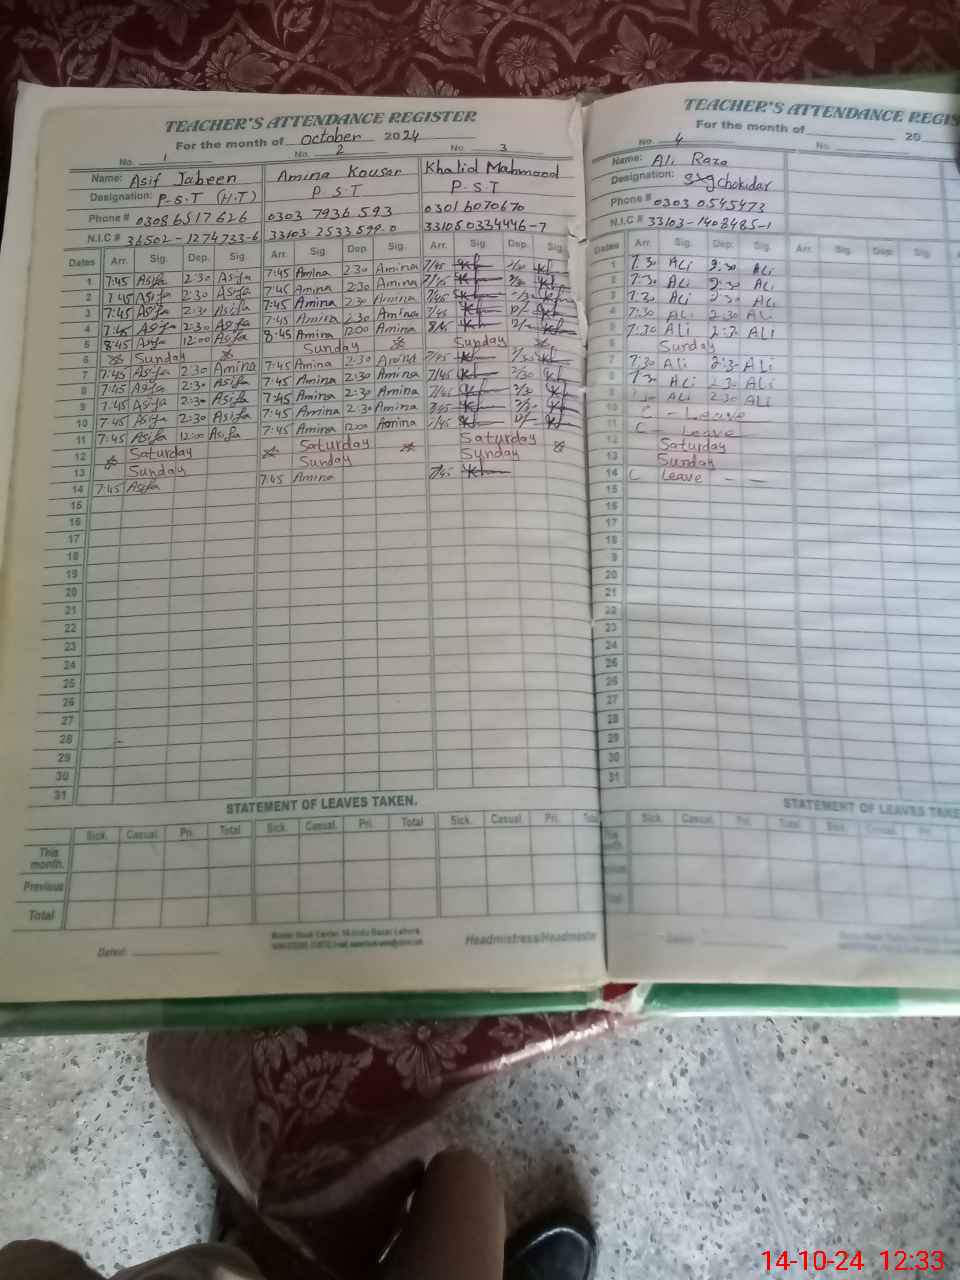 TEACHER'S ATTENDANCE REGISTER
For the month of October 2024
No. 1 No. 2 No. 3
Name: Asif Jabeen Amina Kousar Khalid Mahmood
Designation: P.S.T (H.T) P.S.T P.S.T
Phone # 0308 6517626 0303 7936593 0301 6070670
N.I.C # 36502-1274733-6 33103 2533599-0 331050334446-7
Dates Arr. Sig. Dep. Sig. Arr. Sig. Dep. Sig. Arr. Sig. Dep. Sig.
1 7:45 Asifa 2:30 Asifa 7:45 Amina 2:30 Amina 7/45 2/30
2 7:45 Asifa 2:30 Asifa 7:45 Amina 2:30 Amina 7/45
3 7:45 Asifa 2:30 Asifa 7:45 Amina 2:30 Amina 7/45
4 7:45 Asifa 2:30 Asifa 7:45 Amina 2:30 Amina 7/45
5 8:45 Asifa 12:00 Asifa 8:45 Amina 12:00 Amina
6 Sunday Sunday Sunday
7 7:45 Asifa 2:30 Amina 7:45 Amina 2:30 Amina 7/45 2/30
8 7:45 Asifa 2:30 Asifa 7:45 Amina 2:30 Amina 7/45 2/30
9 7:45 Asifa 2:30 Asifa 7:45 Amina 2:30 Amina 7/45 2/30
10 7:45 Asifa 2:30 Asifa 7:45 Amina 2:30 Amina 7/45
11 7:45 Asifa 12:00 Asifa 7:45 Amina 12:00 Amina 7/45
12 Saturday Saturday Saturday
13 Sunday Sunday Sunday
14 7:45 Asifa 7:45 Amina 7/45
15
16
17
18
19
20
21
22
23
24
25
26
27
28
29
30
31
STATEMENT OF LEAVES TAKEN.
Sick. Casual. Pri. Total Sick. Casual. Pri. Total Sick. Casual. Pri.
This month.
Previous
Total
Dated:
Headmistress/Headmaster
TEACHER'S ATTENDANCE REGIS
For the month of 20
No. 4 No.
Name: Ali Raza
Designation: Chokidar
Phone # 0303 0545473
N.I.C # 33103-1408485-1
Dates Arr. Sig. Dep. Sig. Arr. Sig. Dep. Sig.
1 7:30 Ali 2:30 Ali
2 7:30 Ali 2:30 Ali
3 7:30 Ali 2:30 Ali
4 7:30 Ali 2:30 Ali
5 7:30 Ali Ali
6 Sunday
7 7:30 Ali 2:3- Ali
8 7:3- Ali 2:3- Ali
9 Ali 2:30 Ali
10 C - Leave
11 C - Leave
12 Saturday
13 Sunday
14 C Leave - -
15
16
17
18
9
20
21
22
23
24
25
26
27
28
29
30
31
STATEMENT OF LEAVES TAKE
Sick. Casual. Pri. Total Sick. Casual. Pri.
14-10-24 12:33